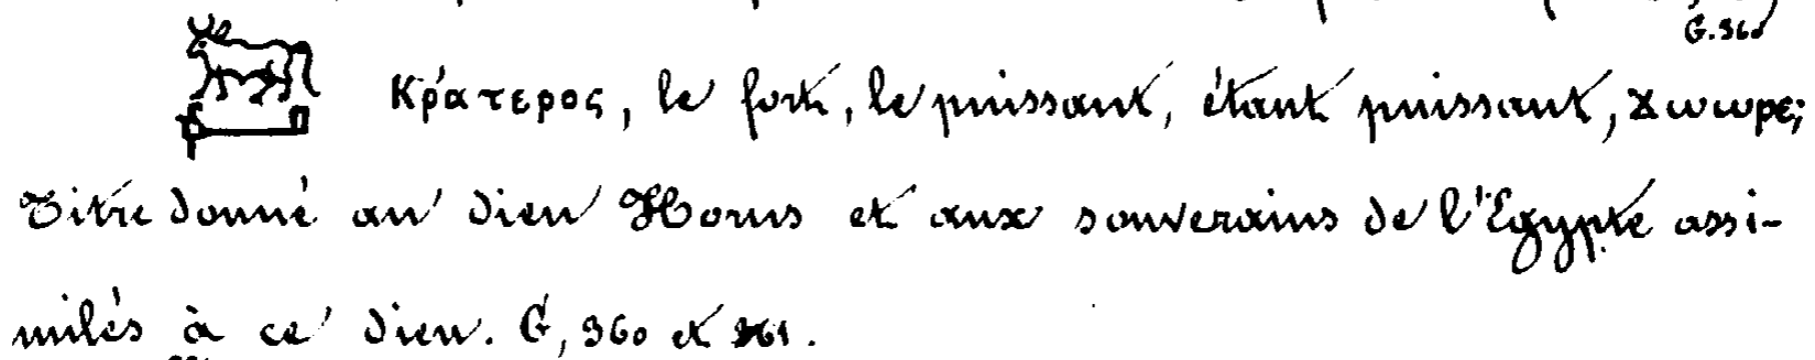 G. 360
𓃒 Κράτερος, le fort, le puissant, étant puissant, ϫⲱⲱⲣⲉ;
Titre donné au dieu Horus et aux souverains de l'Égypte assi-
milés à ce dieu. G, 360 et 361.